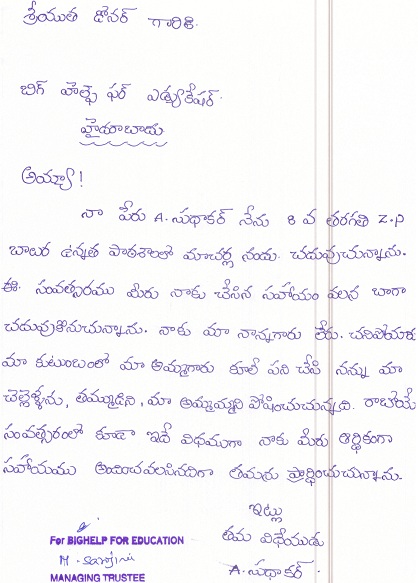 శ్రీయుత డోనర్ గారికి.
బిగ్ హెల్ప్ ఫర్ ఎడ్యుకేషర్.
హైదరాబాదు
అయ్యా!
నా పేరు A. సుధాకర్ నేను 8 వ తరగతి Z.P
బాలుర ఉన్నత పాఠశాలలో మాచర్ల నందు చదువుచున్నాను.
ఈ సంవత్సరము మీరు నాకు చేసిన సహాయం వలన బాగా
చదువుకొనుచున్నాను. నాకు మా నాన్నగారు లేరు. చనిపోయారు
మా కుటుంబంలో మా అమ్మగారు కూలీ పని చేసి నన్ను మా
చెల్లెళ్ళను, తమ్ముడిని, మా అమ్మమ్మని పోషించుచున్నది. రాబోయే
సంవత్సరంలో కూడా ఇదే విధముగా నాకు మీరు ఆర్థికంగా
సహాయము అందించవలసినదిగా తమరు ప్రార్థించుచున్నాను.
ఇట్లు
తమ విధేయుడు
A. సుధాకర్.
For BIGHELP FOR EDUCATION
M. Sarojini
MANAGING TRUSTEE